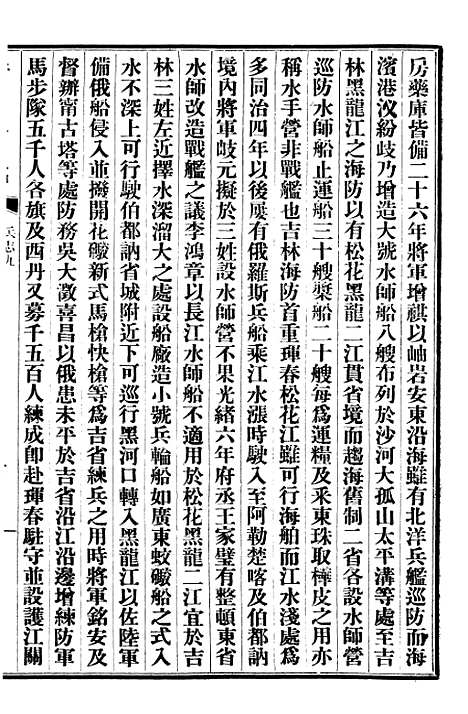 房藥庫皆備二十六年將軍增祺以岫岩安東沿海雖有北洋兵艦巡防而海
濱港汊紛歧乃增造大號水師船八艘布列於沙河大孤山太平溝等處至吉
林黑龍江之海防以有松花黑龍二江貫省境而趨海舊制二省各設水師營
巡防水師船止運船三十艘槳船二十艘每歲爲運糧及采東珠取樺皮之用亦
稱水手營非戰艦也吉林海防首重琿春松花江雖可行海舶而江水淺處爲
多同治四年以後屢有俄羅斯兵船乘江水漲時駛入至阿勒楚喀及伯都訥
境內將軍岐元擬於三姓設水師營不果光緒六年府丞王家璧有整頓東省
水師改造戰艦之議李鴻章以長江水師船不適用於松花黑龍二江宜於吉
林三姓左近擇水深溜大之處設船廠造小號兵輪船如廣東蚊礮船之式入
水不深上可行駛伯都訥省城附近下可巡行黑河口轉入黑龍江以佐陸軍
備俄船侵入並撥開花礮新式馬槍快槍等爲吉省練兵之用時將軍銘安及
督辦甯古塔等處防務吳大澂喜昌以俄患未平於吉省沿江沿邊增練防軍
馬步隊五千人各旗及西丹又募千五百人練成卽赴琿春駐守並設護江關
兵志九
一